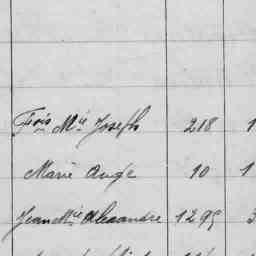 Fois Mie Joseph 218 1
Marie Ange 10 1
Jean Mie Alexandre 1295 3